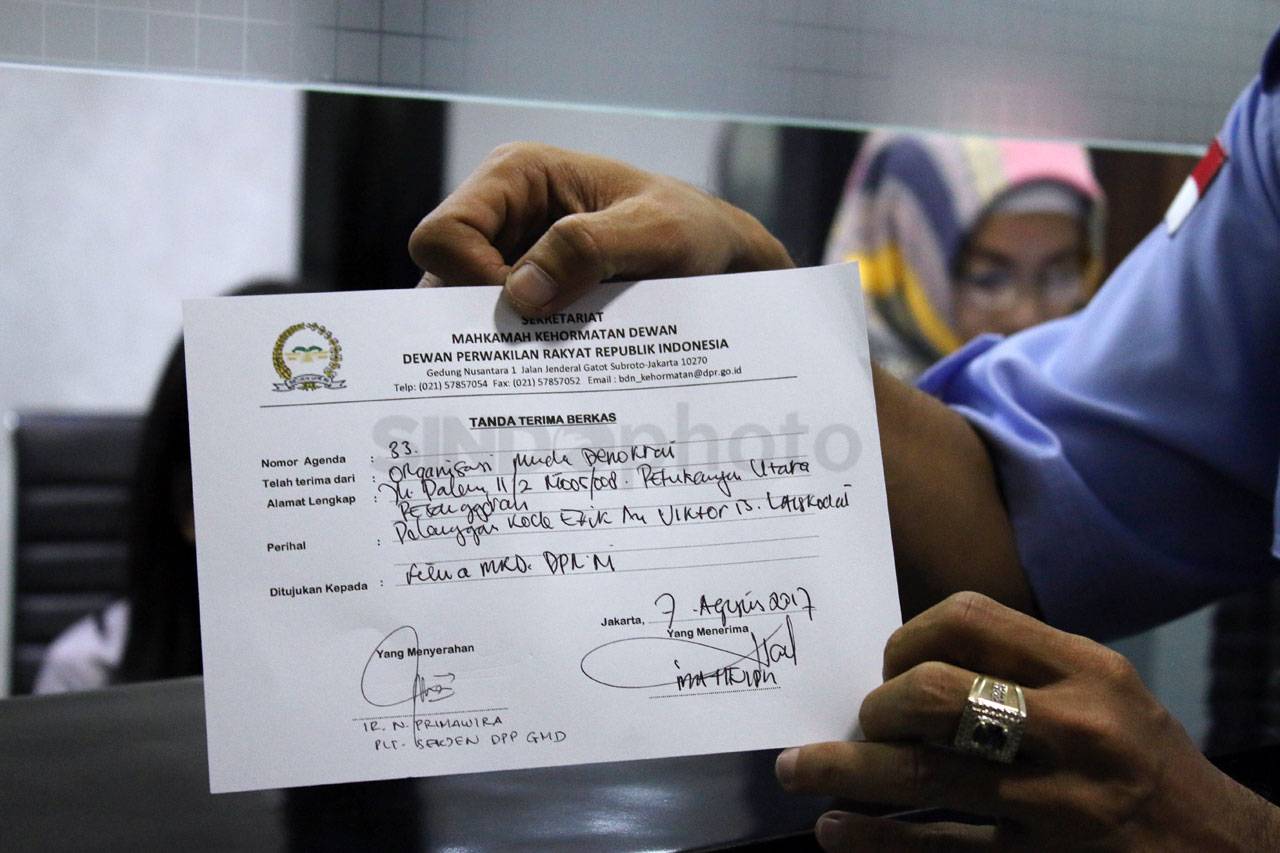 SEKRETARIAT
MAHKAMAH KEHORMATAN DEWAN
DEWAN PERWAKILAN RAKYAT REPUBLIK INDONESIA
Gedung Nusantara 1 Jalan Jenderal Gatot Subroto-Jakarta 10270
Telp: (021) 57857054 Fax: (021) 57857052 Email : bdn_kehormatan@dpr.go.id
TANDA TERIMA BERKAS
SINDOphoto
Nomor Agenda : 33.
Telah terima dari : Organisasi Muda Demokrat
Alamat Lengkap : Jl. Dalem II/2 Petukangan Utara
Pesanggrahan
Perihal : Pelanggan Kode Etik An Viktor B. Laiskodat
Ditujukan Kepada : Ketua MKD. DPR RI
Jakarta, 7. Agustus 2017
Yang Menyerahan
Yang Menerima
IR. N. PRIMAWIRA
PLT. SEKJEN DPP GMD